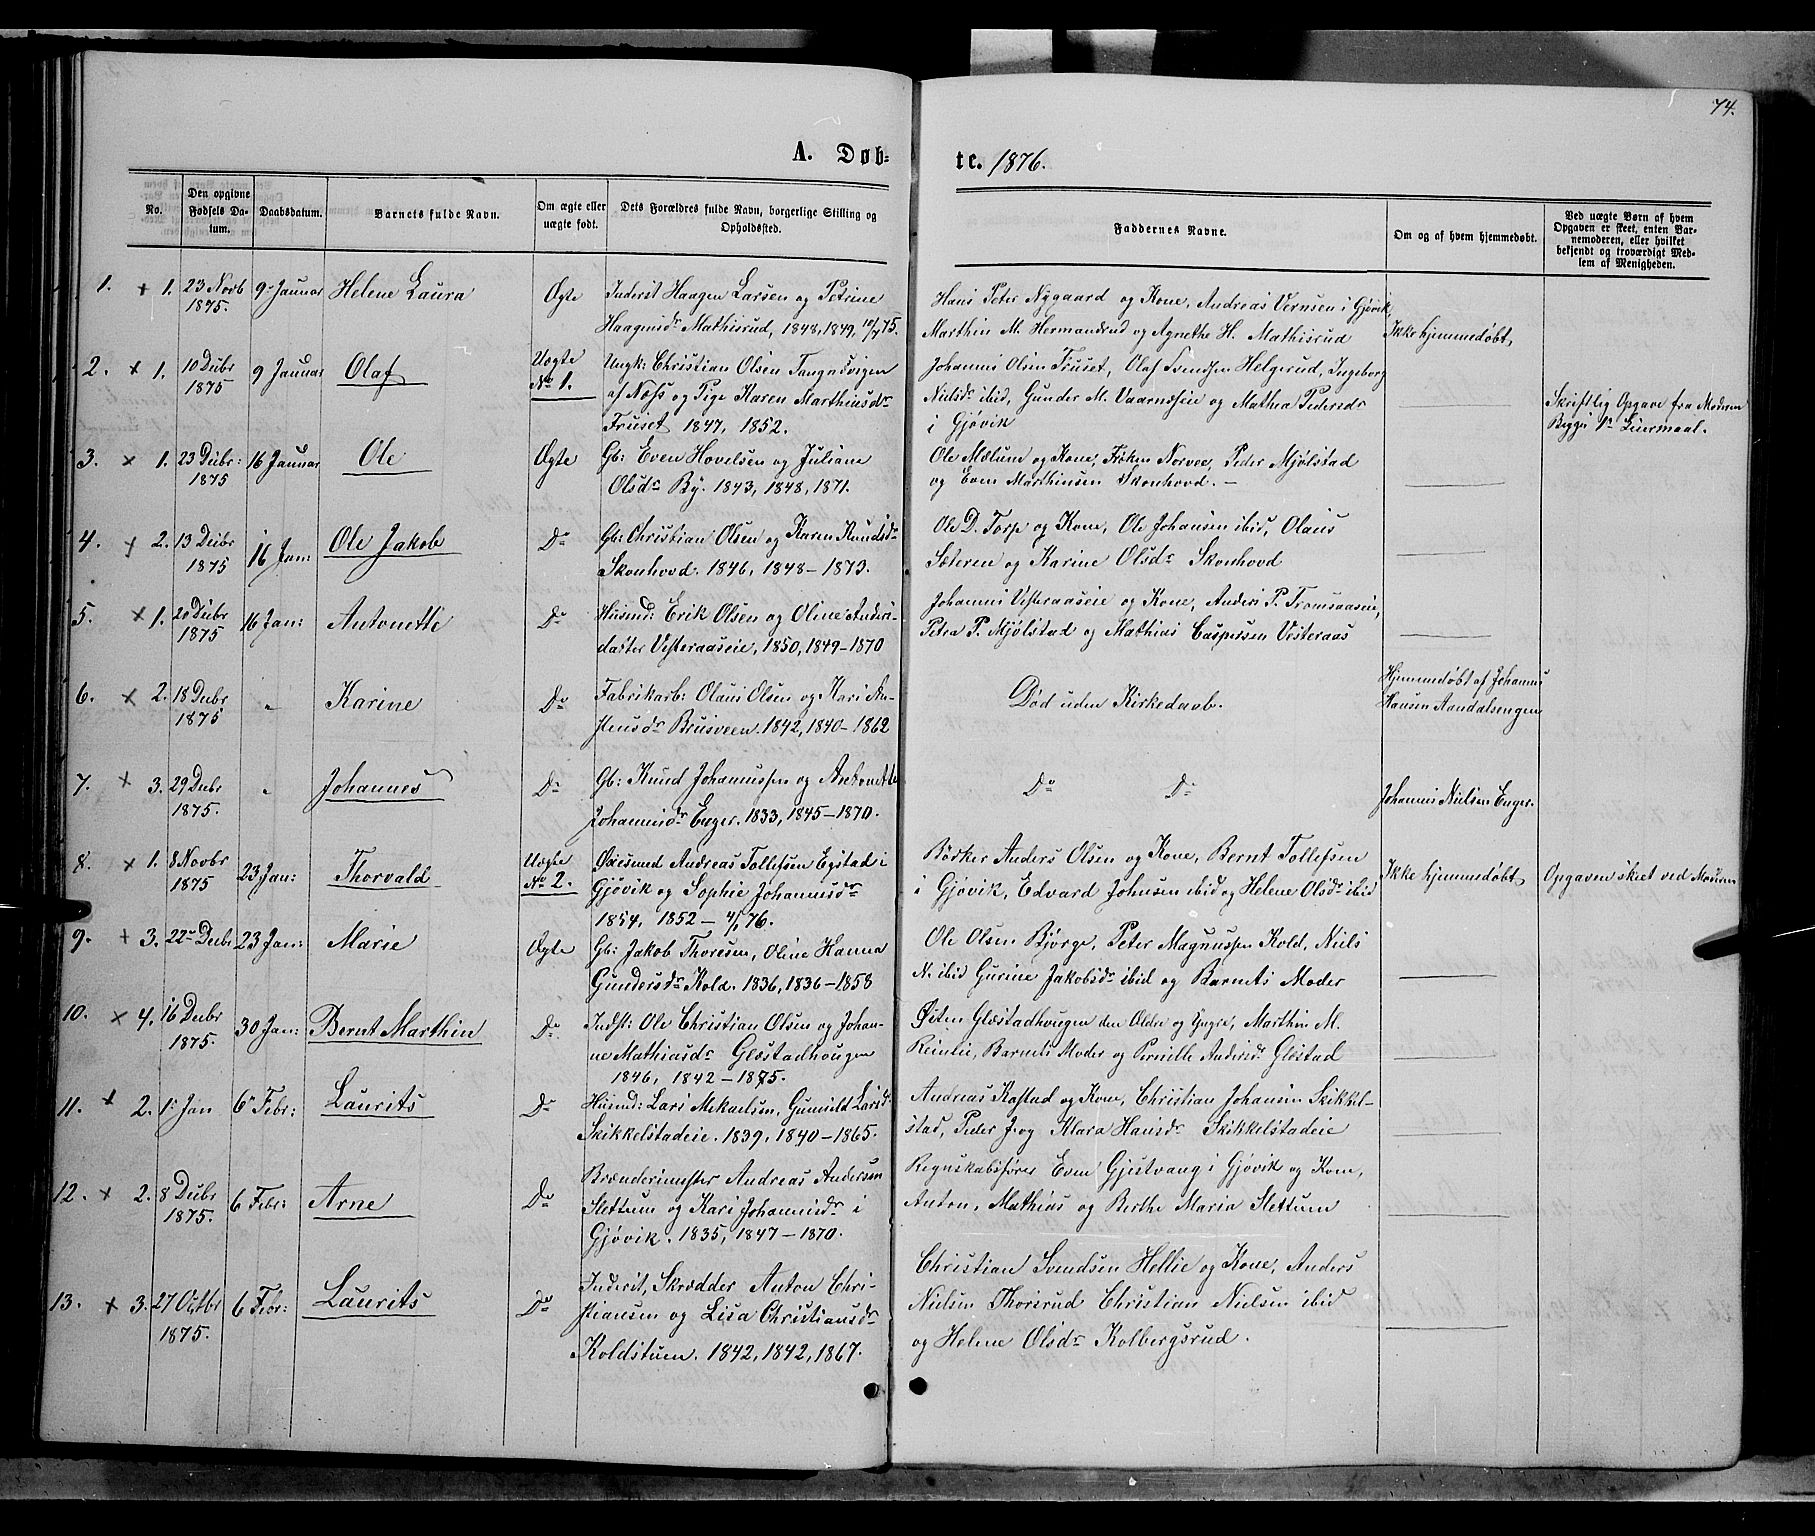 74.
A. Døb-
te. 1876.
No.
Den opgivne Fødsels Da-tum.
Daabsdatum.
Barnets fulde Navn.
Om ægte eller uægte født.
Dets Forældres fulde Navn, borgerlige Stilling og Opholdssted.
Faddernes Navne.
Om og af hvem hjemmedøbt.
Ved uægte Børn af hvem Opgaven er skeet, enten Bar-nemoderen, eller hvilket bekjendt og troværdigt Med-lem af Menigheden.
1. + 1. 23 Novb 9 Januar Helene Laura Ægte Inderst Haagen Larsen og Petrine
1875. Haagensdr Mathisrud, 1848, 1849, 10/7 75.
Hans Peter Nygaard og Kone, Andreas Vernsen i Gjøvik,
Marthin M. Hermandrud og Agnethe H. Mathisrud Ikke hjemmedøbt,
2. x 1. 10 Debr 9 Januar Olaf Uægte Ungk: Christian Olsen Tangnesvigen
1875 No 1. af Næss og Pige Karen Marthinsdr
Fruset 1847, 1852.
Johannes Olsen Fruset, Olaf Svendsen Helgerud, Ingeborg
Nielsdr ibid, Gunder M. Vaarnæseie og Mathea Pedersdr
i Gjøvik
Skriftlig Opgave fra Moderen
Begges 1ste Leiermaal.
3. x 1. 23 Debr: 16 Januar Ole Ægte Gb: Even Hovelsen og Juliane
1875 Olsdr By. 1843, 1848, 1871.
Ole Mælum og Kone, Frøken Norvee, Peder Mjølstad
og Even Marthinsen Skonhovd.
4. x 2. 13 Debr 16 Jan: Ole Jakob Do Gb: Christian Olsen og Karen Knudsdr
1875 Skonhovd. 1846, 1848 – 1873.
Ole D. Torp og Kone, Ole Johansen ibid, Olaus
Sæteren og Karine Olsdr Skonhovd
5. x 1. 20 Debr 16 Jan: Antonette Do Husmd: Erik Olsen og Oline Anders-
1875 datter Vesteraaseie, 1850, 1849 – 1870
Johannes Vesteraaseie og Kone, Anders P. Fromsaaseie,
Petra P. Mjølstad og Mathias Caspersen Vesteraas
6. x 2. 18 Debr " Karine Do Fabrikarb: Olaus Olsen og Kari An-
1875 Brusveen. 1842, 1840 – 1862
Død uden Kirkedaab.
Hjemmedøbt af Johannes
Hansen Aandalsengen
7. x 3. 29 Debr " Johannes Do Gb: Knud Johannssen og Antonette
1875. Johannesdr Enger. 1833, 1845 – 1870.
Do Do Johannes Nielsen Enger.
8. x 1. 8 Novbr 23 Jan: Thorvald Uægte Andreas Tollefsen Egstad i
1875 No 2. Gjøvik og Sophie Johannesdr
1854, 1852 – 4/1 76.
Børker Anders Olsen og Kone, Bernt Tollefsen
i Gjøvik, Edvard Johnsen ibid og Helene Olsdr ibid
Ikke hjemmedøbt Opgaven skeet ved Moderen
9. + 3. 22 Debr 23 Jan: Marie Ægte Gb: Jakob Thoresen, Oline Hanna
Gundersdr Kold. 1836, 1836 – 1858
Ole Olsen Bjørge, Peter Magnussen Kold, Niels
N. ibid Gurine Jakobsdr ibid og Barnets Moder
10. x 4. 16 Debr 30 Jan: Bernt Marthin Do Indst: Ole Christian Olsen og Johan-
1875. ne Mathiasdr Glæstadhougen
1846, 1842 – 1875.
Østen Glæstadhougen den Ældre og Yngre, Marthin M.
Barnets Moder og Pernille Andersdr Glæstad
11. x 2. 1 Jan 6 Febr: Laurits Do Husmd: Lars Mekaelsen, Gunild Larsdr
Skikkelstadeie. 1839, 1840 – 1865.
Andreas Kastad og Kone, Christian Johansen Skikkel-
stad, Peder J. og Klara Hansdr Skikkelstadeie
12. x 2. 8 Debr 6 Febr: Arne Do Brænderimester Andreas Andersen
1875. Slettum og Kari Johannesdr i
Gjøvik. 1835, 1847 – 1870.
Regnskabsfører Even Gjestvang i Gjøvik og Kone,
Anton, Mathias og Berthe Maria Slettum
13. x 3. 27 Octbr 6 Febr: Laurits Do Inderst, Skrædder Anton Chri-
1875. stiansen og Lisa Christiansdr
Koldstuen. 1842, 1842, 1867.
Christian Svendsen Hellie og Kone, Anders
Nielsen Thorsrud Christian Nielsen ibid
og Helene Olsdr Kolbergsrud.